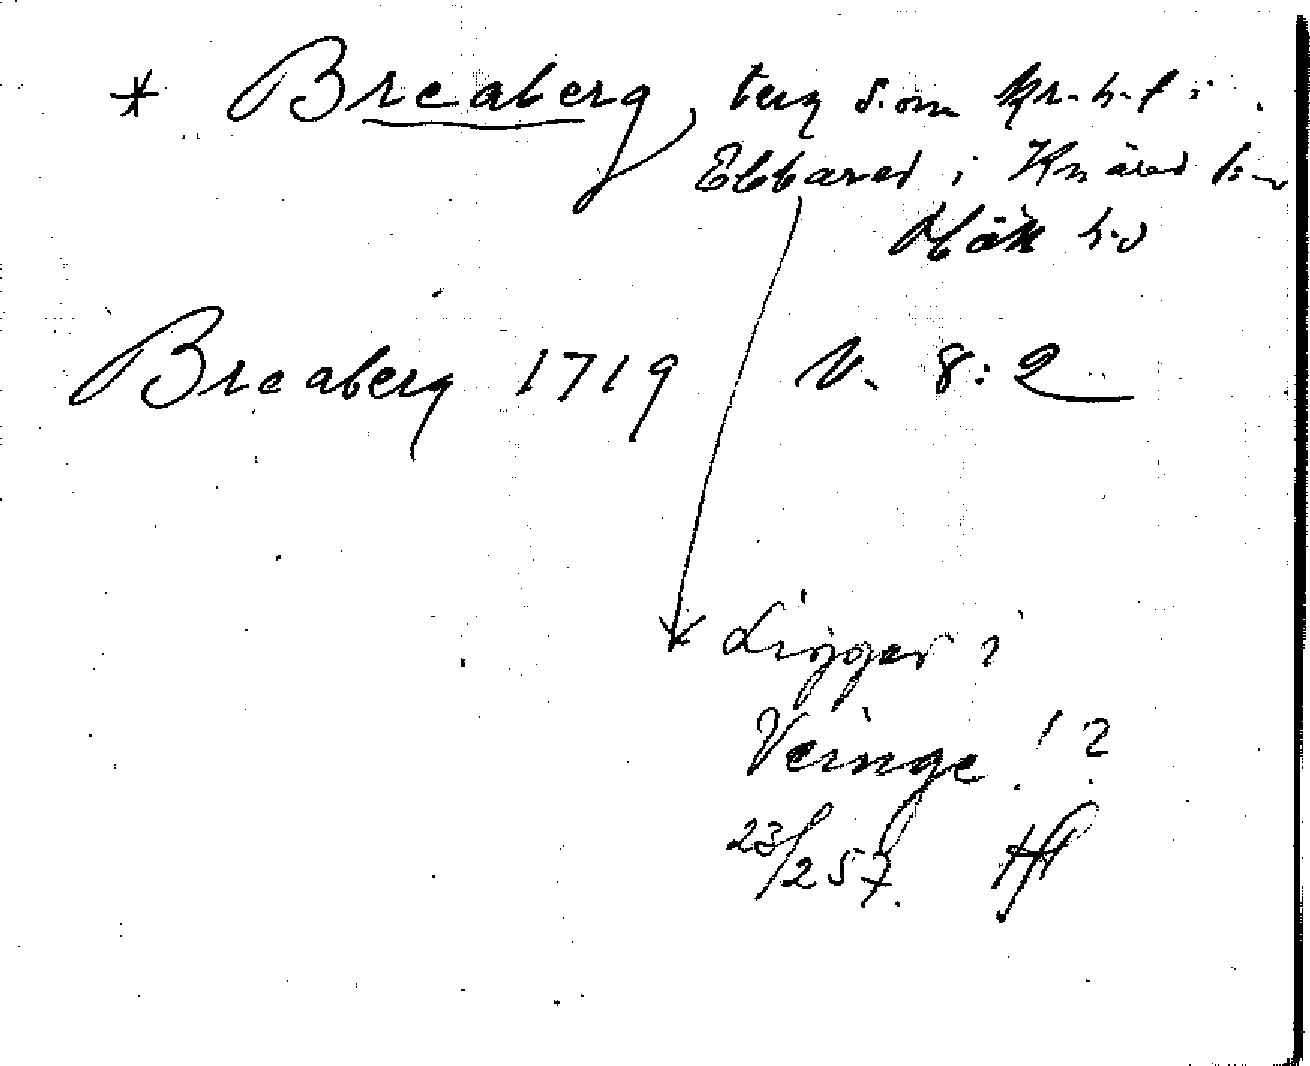 * Breaberg, berg som
Ebbared i Knäred
Hök hd
Breaberg 1719 V. 8:2
* Ligger i
Veinge! ?
23/2 57. HP